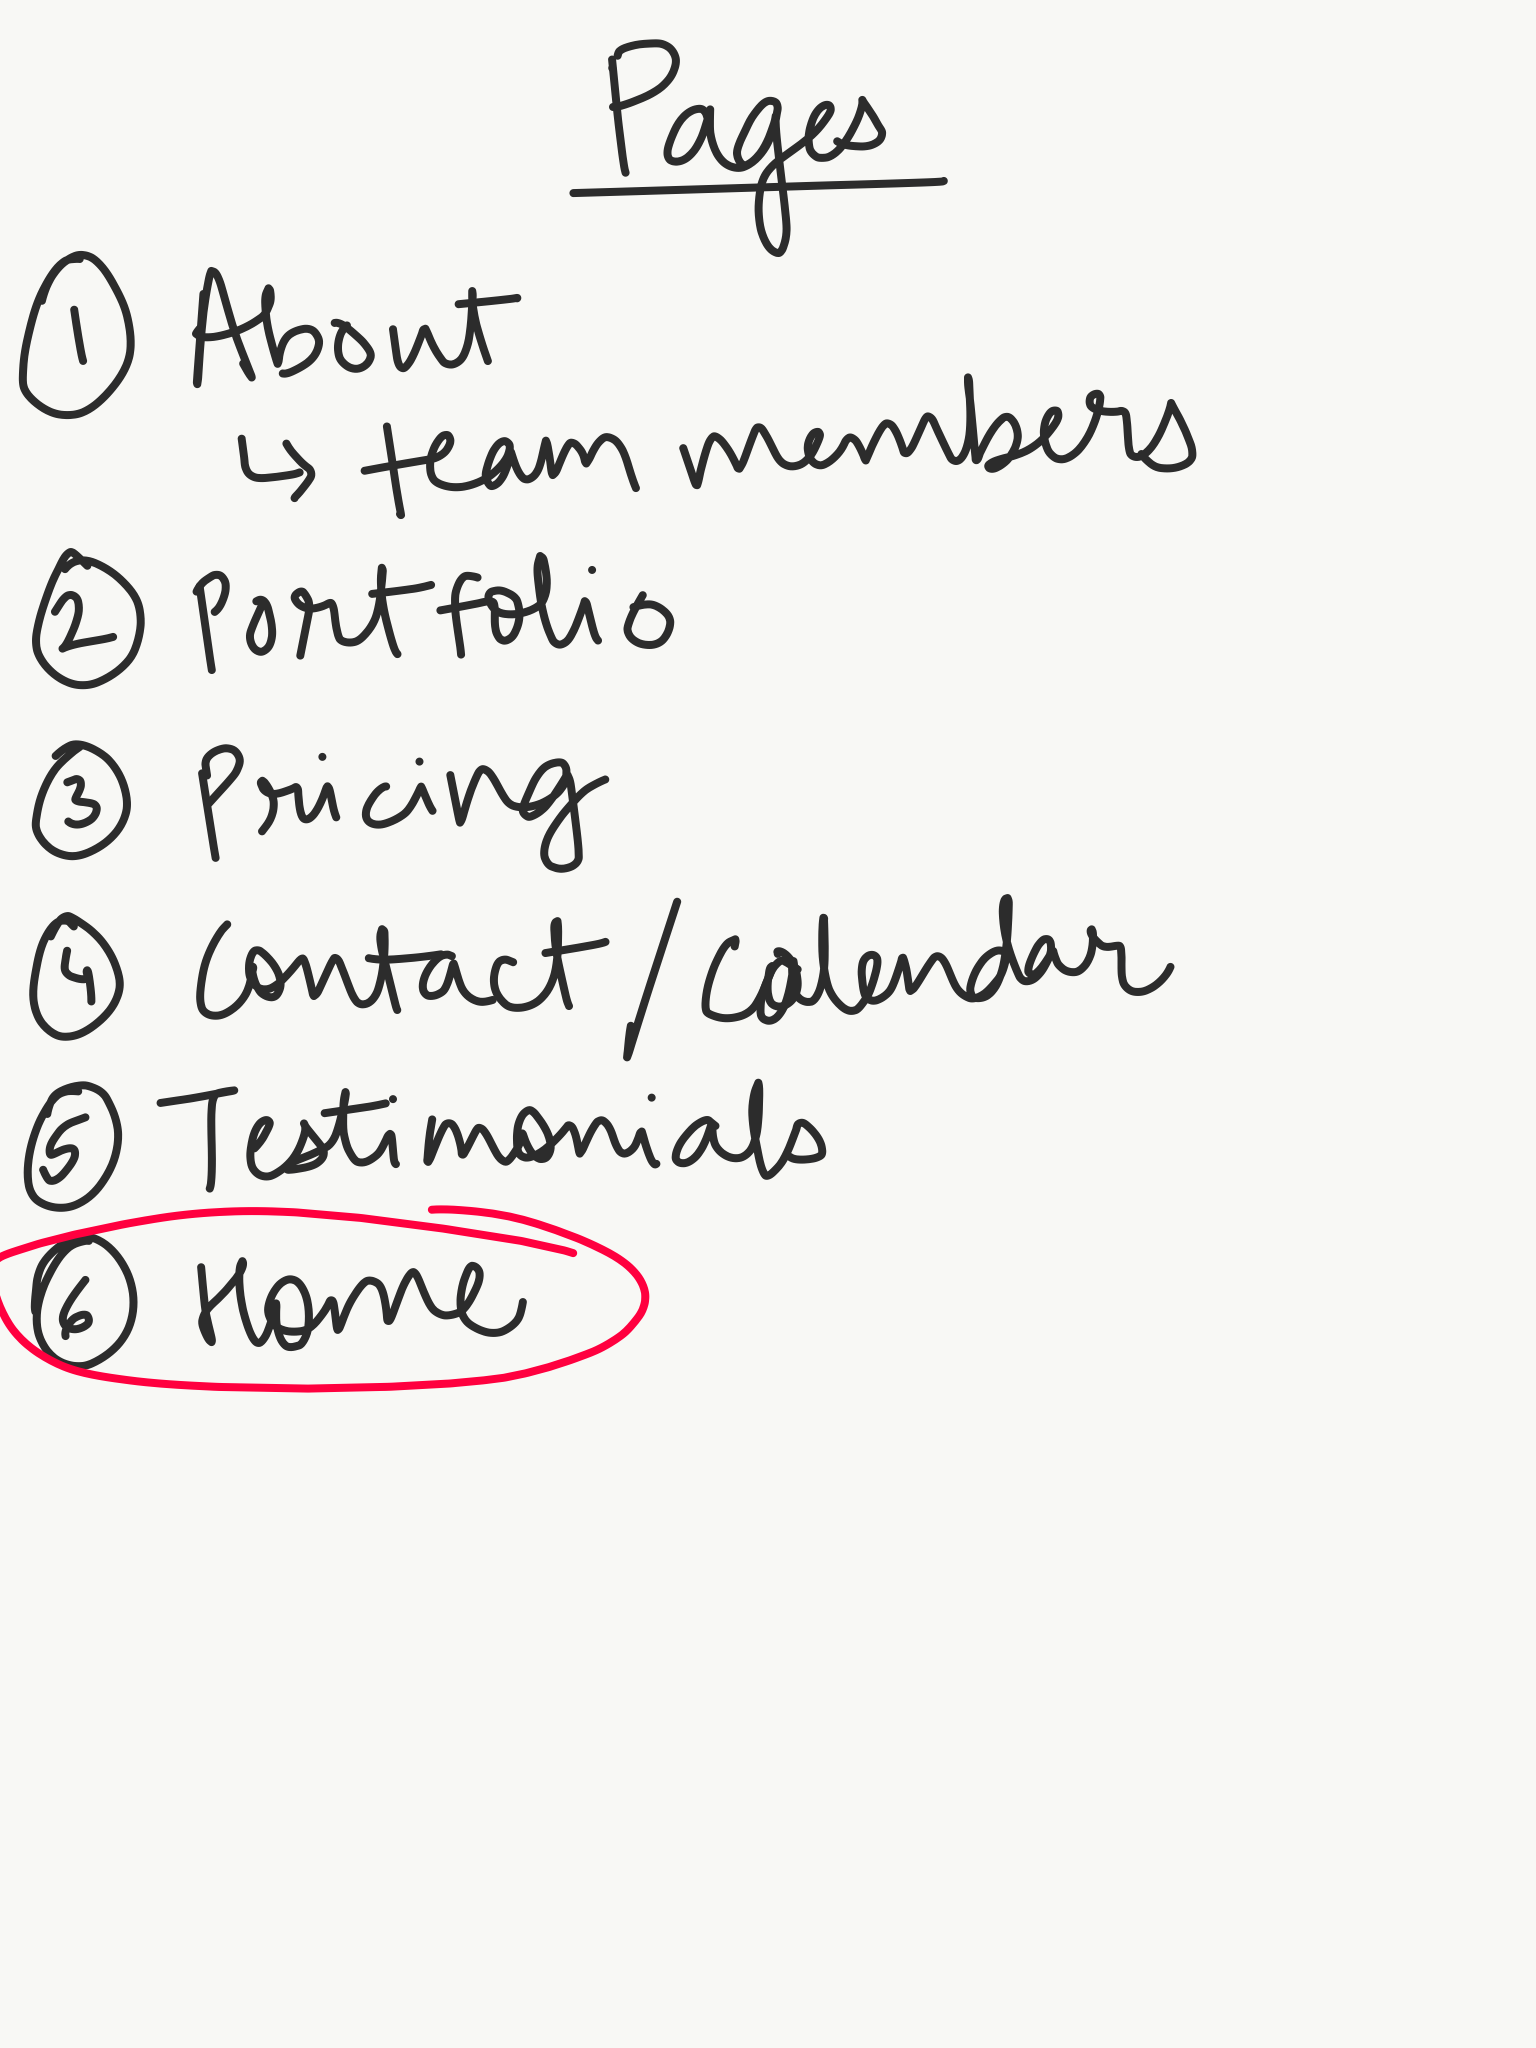 Pages
1 About
↳ team members
2 Portfolio
3 Pricing
4 Contact/Calendar
5 Testimonials
6 Home